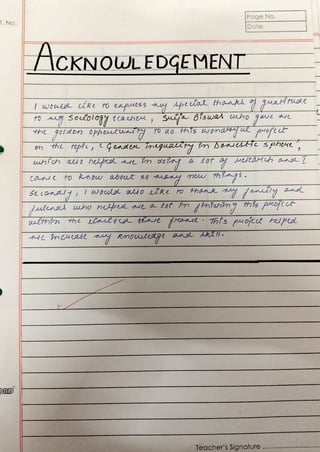 T. No.
Page No.
Date.
ACKNOWLEDGEMENT
I would like to express my special thanks of gratitude
to my Sociology teacher, Sruja Biswas who gave me
the golden oppertunity to do this wonderful project
on the topic, 'Gender inequality in Domestic sphere',
which also helped me in doing a lot of research and I
came to know about so many new things.
Secondly, I would also like to thank my family and
friends who helped me a lot in finishing this project
within the limited time frame. This project helped
me increase my knowledge and skill.
Teacher's Signature